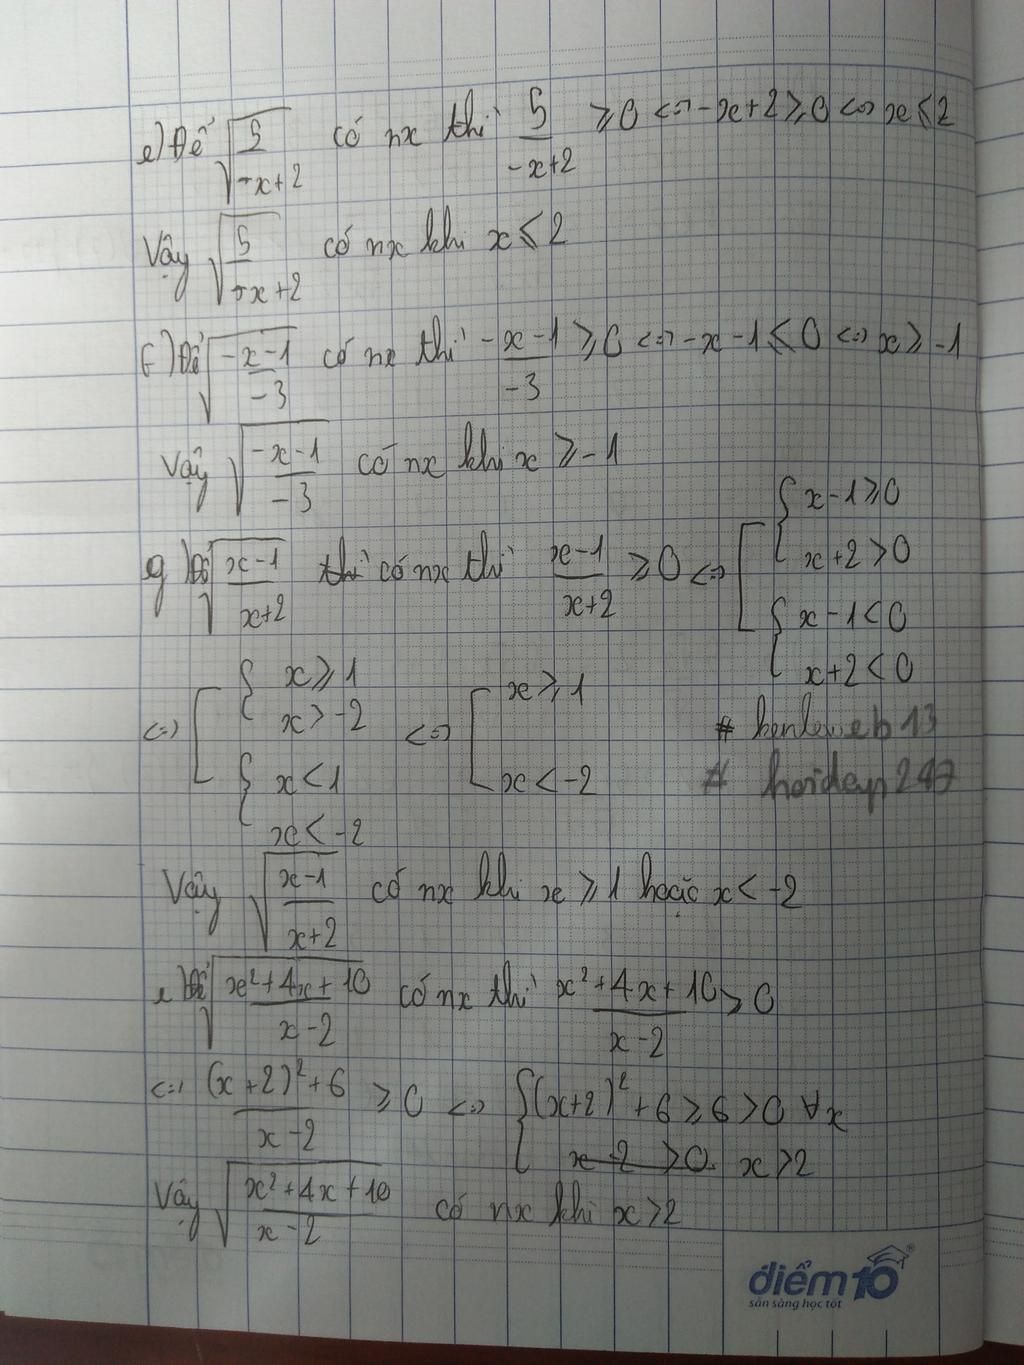 e) Để √(5/(-x+2)) có nx thì 5/(-x+2) ≥ 0 <=> -x+2 ≥ 0 <=> x ≤ 2
Vậy √(5/(-x+2)) có nx khi x ≤ 2
f) Để √((-x-1)/(-3)) có nx thì (-x-1)/(-3) ≥ 0 <=> -x-1 ≤ 0 <=> x ≥ -1
Vậy √((-x-1)/(-3)) có nx khi x ≥ -1
g) Để √((x-1)/(x+2)) thì có nx thì (x-1)/(x+2) ≥ 0 <=> [ { x-1 ≥ 0
x+2 > 0
{ x-1 < 0
x+2 < 0
<=> [ { x ≥ 1
x > -2
{ x < 1
x < -2
<=> [ x ≥ 1
x < -2
#
# hoidap247
Vậy √((x-1)/(x+2)) có nx khi x ≥ 1 hoặc x < -2
Để √((x²+4x+10)/(x-2)) có nx thì (x²+4x+10)/(x-2) ≥ 0
<=> ((x+2)²+6)/(x-2) ≥ 0 <=> { (x+2)²+6 ≥ 6 > 0 ∀x
x-2 > 0 x > 2
Vậy √((x²+4x+10)/(x-2)) có nx khi x > 2
điểm10
sẵn sàng học tốt